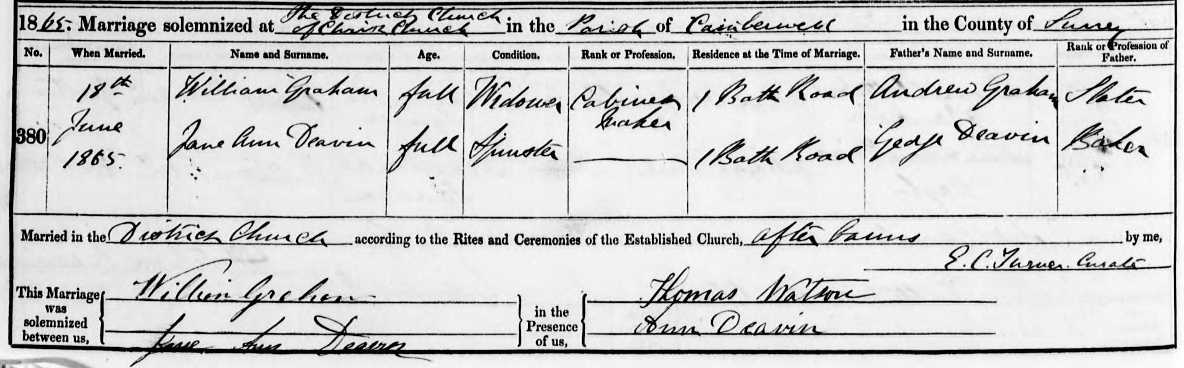 1865. Marriage solemnized at The District Church of Christ Church in the Parish of Camberwell in the County of Surrey
No. When Married. Name and Surname. Age. Condition. Rank or Profession. Residence at the Time of Marriage. Father's Name and Surname. Rank or Profession of Father.
380 18th June 1865. William Graham full Widower Cabinet Maker 1 Bath Road Andrew Graham Slater
Jane Ann Deavin full Spinster 1 Bath Road George Deavin Baker
Married in the District Church according to the Rites and Ceremonies of the Established Church, after banns by me,
E. C. Turner. Curate
This Marriage was solemnized between us, William Graham Jane Ann Deavin in the Presence of us, Thomas Watson Ann Deavin